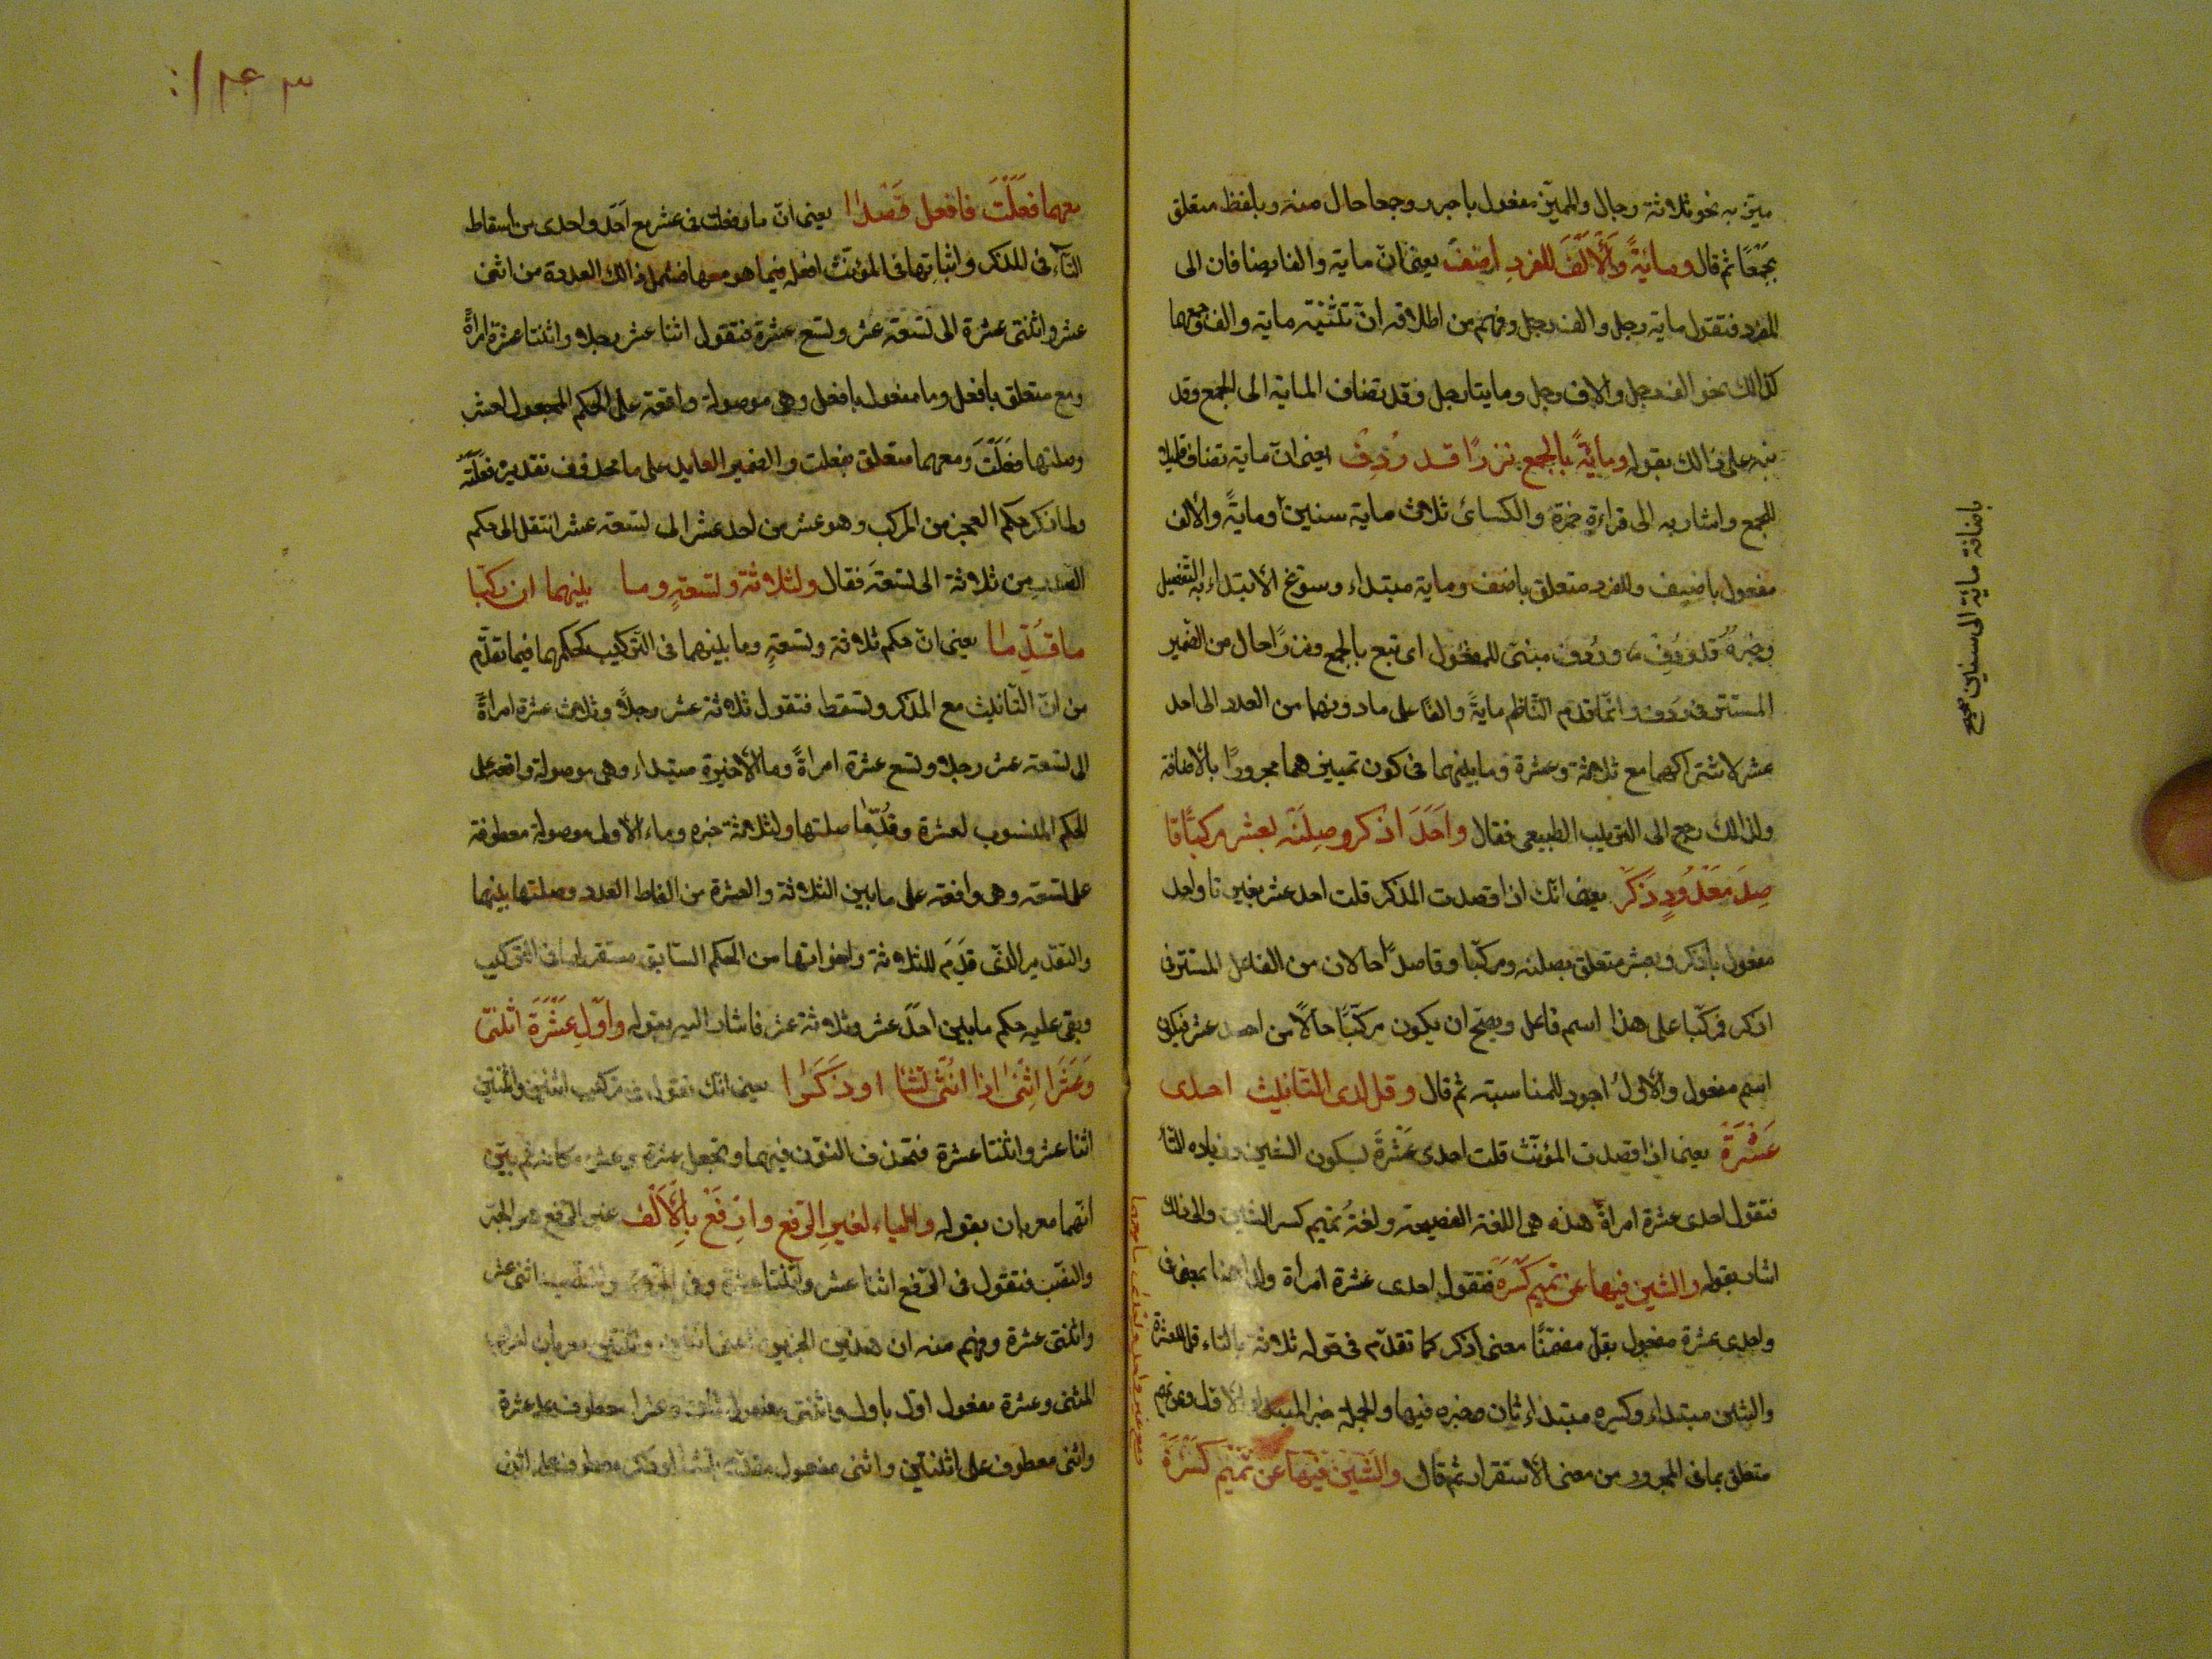 ميز به نحو ثلاثة رجال والمميز مفعول باجرر وجمعا حال منه وبلفظ متعلق
بجمعًا ثم قال ومائةً وَالْأَلْفَ للفردِ أضِفْ يعني انّ ماية والفا يضافان الى
المفرد فتقول ماية رجل والف رجل وفهم من اطلاقه انّ تثنية ماية والف وجمعهما
كذالك نحو الف رجل والاف رجل ومايتا رجل وقد تضاف الماية الى الجمع وقد
نبه على ذالك بقوله ومائةٌ بالجمع نزرًا قد رُدِفْ يعني انّ ماية تضاف قليلا
للجمع واشار به الى قراءة حمزة والكسائ ثلاث ماية سنين ومايةً والالف
مفعول باضف وللفرد متعلق باضف وماية مبتداء وسوّغ الابتداء به التفصيل
وخبرهُ قد رُدِفْ وردف مبنيّ للمفعول اى تبع بالجمع ونزرًا حال من الضمير
المستتر فى ردف وانّما قدم النّاظم مايةً والفًا على ما دونهما من العدد الى احد
عشر لاشتراكهما مع ثلاثة وعشرة وما بينهما فى كون تمييزهما مجرورًا بالاضافة
ولذالك رجع الى الترتيب الطبيعى فقال وأحَدَ اذكر وصِلَنْه بعشر مركبًا قا
صِدَ مَعْدُودٍ ذَكَرْ يعنى انّك اذا قصدت المذكر قلت احد عشر بغير تا واحد
مفعول باذكر وبعشر متعلق بصلنه ومركّبا وقاصدًا حالان من الفاعل المستتر فى
اذكر فمركّبا على هذا اسم فاعل ويصّح ان يكون مركّبًا حالًا من احد عشر فيكون
اسم مفعول والاوّلُ اجود للمناسبة ثم قال وقل لدى التانيث احدى
عَشْرَةَ يعنى اذا قصدت المؤنّث قلت احدى عَشْرَةَ بسكون الشين وزيادة التّا
فتقول احدى عشرة امراةً هذه هى اللغة الفصيحة ولغةُ تميم كسر الشين والى ذلك
اشار بقوله والشين فيها عن تميم كَسْرَهْ فتقول احدى عشرة امراة
واحدى عشرة مفعول بقل مضمّنًا معنى اذكر كما تقدّم فى قوله ثلاثة بالتاء قل للعشرة
والشين مبتداء وكسره مبتداء ثان وخبره فيها والجملة خبر المبتداء الاوّل وعن تميم
متعلق بما فى المجرور من معنى الاستقرار ثم قال والشين فيها عن تميم كَسْرَهْ
باضافة ماية الى سنين صح
ومع غير واحد واحدى ما معهما
١٢٤٣
معهما فعَلْتَ فافعل قَصْدَا يعنى انّ ما فعلت فى عشر مع أحَدَ واحدى من اسقاط
التّآء فى المذكر واثباتها فى المؤنّث افعله فيما هو معها فشمل ذالك العدد من اثنى
عشر واثنتى عشرة الى تسعة عشر وتسع عشرة فتقول اثنا عشر رجلا واثنتا عشرة امراةً
ومع متعلق بافعل وما مفعول بافعل وهى موصولة واقعة على الحكم المجعول لعشر
وصلتها فعَلْتَ ومعهما متعلق بفعلت والضمير العايد على ما محذوف تقديره فعَلْتَهُ
ولما ذكر حكم العجز من المركب وهو عشر من احد عشر الى تسعة عشر انتقل الى حكم
الصدر من ثلاثة الى تسعة فقال ولثلاثة وتسعةٍ وما بينهما ان ركّبا
ما قُدِّما يعنى انّ حكم ثلاثة وتسعةٍ وما بينهما فى التّركيب كحكمهما فيما تقدّم
من انّ التّا تثبت مع المذكر وتسقط فتقول ثلاثة عشر رجلًا وثلاث عشرة امراةً
الى تسعة عشر رجلا وتسع عشرة امراةً وما الاخيرة مبتداء وهى موصولة واقعة على
الحكم المنسوب لعشرة وقُدِّما صلتها ولثلاثة خبره وماء الاولى موصولة معطوفة
على تسعة وهى واقعة على ما بين الثلاثة والعشرة من الفاظ العدد وصلتها بينهما
والتقدير الّذى قدِّمَ للثلاثة واخواتها من الحكم السّابق مستقر لها فى التّركيب
وبقى عليه حكم ما بين احدَ عشر وثلاثة عشر فاشار اليه بقوله وأوْلِ عَشْرَةَ اثنتىْ
وَعَشَرَا اثنَىْ إذا أُنثى تَشَا او ذَكَرَا يعنى انّك تقول فى تركيب اثنين واثنتين
اثنا عشر واثنتا عشرة فتحذف النّون فيهما وتجعل عشرة وعشر مكانه ثم بيّن
انّهما معربان بقوله واليا لغيرِ الرّفع وارْفَعْ بالألْف غير الرّفع هو الجرّ
والنصب فتقول فى الرّفع اثنا عشر واثنتا عشرة وفى الجر والنصب اثنى عشر
واثنتى عشرة وفهم منه ان هذين الجزءين اعنى اثنين واثنتين معربان
المثنى وعشرة مفعول اوّل باول واثنتى مفعول ثان وعشرا معطوف على عشرة
واثنى معطوف على اثنتين وانثى مفعول مقدّم بتشا او ذكرا معطوف على انثى